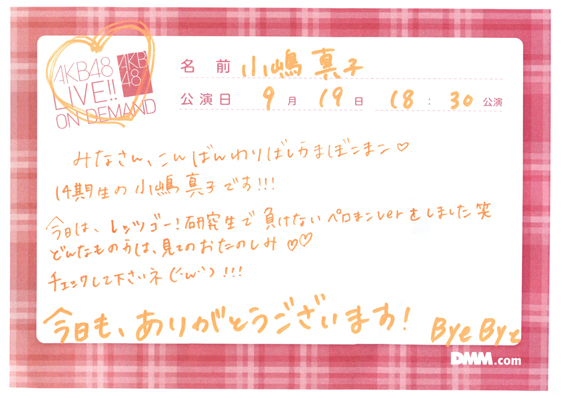 AKB48
LIVE!!
ON DEMAND
AKB
48
名 前 小嶋 真子
公演日 9 月 19 日 18 : 30 公演
みなさん、こんばんわりばしうまぼこまこ♡
14期生の 小嶋 真子です!!!
今日は、レッツゴー!研究生で 負けないペロキャンverをしました 笑
どんなものかは、見てのおたのしみ♡♡
チェックして下さいネ(´･ω･`)!!!
今日も、ありがとうございます! Bye Bye
DMM.com